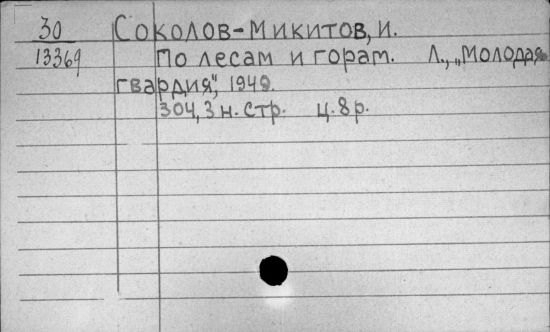 30 Соколов-Микитов, И.
13369 По лесам и горам. Л., „Молодая
гвардия", 1949.
304, 3 н. стр. ц. 8 р.